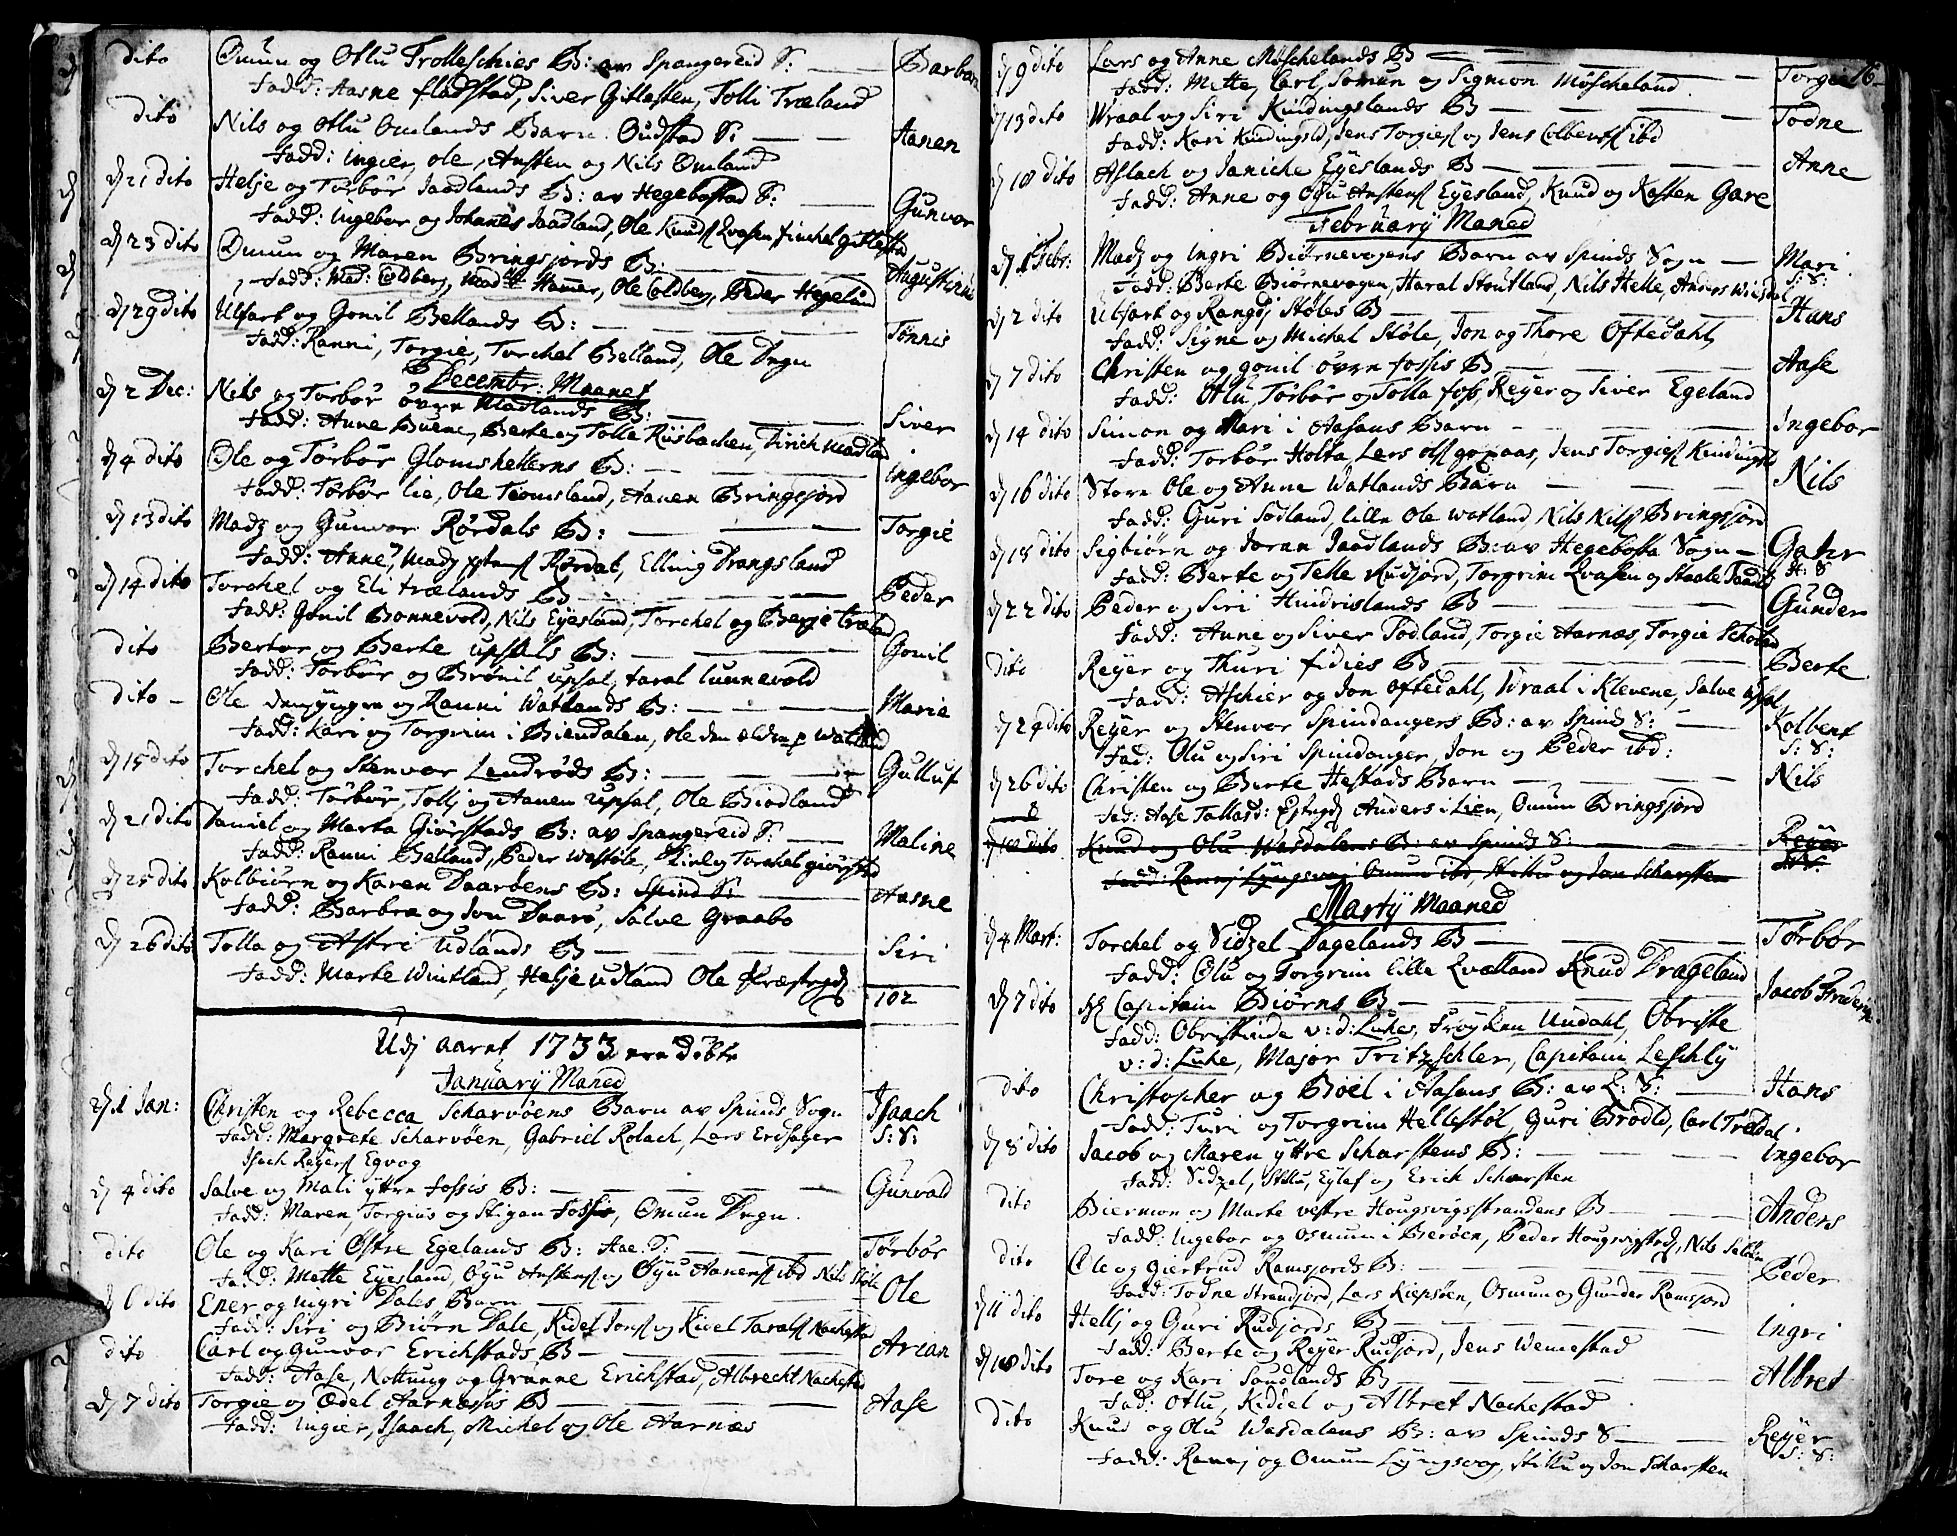 dito Omun og Ollu Trolleschies B: av Spangereid S: Barbara
Fadd: Aasne fladstad, Siver Gitlesten, Tolli Træland
dito Nils og Ollu Omlands Barn Oudstad S: Aanen
Fadd: Ingier, Ole, Ansten og Nils Omland
d 21 dito Helje og Torbør Jaadlands B: av Hegebostad S: Gunvor
Fadd: Ingebor og Johanes Jaadland, Ole Knuds Qvasen,
d 23 dito Omun og Maren Bringsjords B: Augustinus
Fadd: Mad: Coldberg, Mad Hamer, Ole Coldberg, Peder Hegelund
d 29 dito Ulfart og Gonil Bellands B: Tønnis
Fadd: Ranni, Torgie, Torchel Belland, Ole Dngn
Decembr: Maanet
d 2 Dec: Nils og Torbør øvre Madlands B: Siver
Fadd: Anne Buene, Berte og Tolle Risbachen, Madland
d 4 dito Ole og Torbør Glomshellerns B: Ingebor
Fadd: Torbør Lie, Ole Tiomsland, Aanen Bringsjord
d 13 dito Madz og Gunvor Rørdals B: Torgie
Fadd: Anne, Madz Rørdal, Elling Drangsland
d 14 dito Torchel og Eli Trælands B Peder
Fadd: Gonil Bonnevold, Nils Eyesland, Torchel og Berje træland
dito Berthor og Berte Upsals B: Gonil
Fadd: Torbør og Brønil upsal, taral lunnevold
dito Ole den yngre og Ranni Watlands B: Marie
Fadd: Kari og Torgrim i Biendalen, ole den eldre Watland
d 15 dito Torchel og Stenvor Lendrøds B: Gulluf
Fadd: Torbør, Tollj og Aanen Upsal, Ole Biodland
d 21 dito Daniel og Marta Giørstads B: av Spangereid S: Maline
Fadd: Ranni Belland, Peder Waastøle, og Torchel giørstad
d 25 dito Kolbiørn og Karen Daarøens B: Spind S: Aasne
Fadd: Barbra og Jon Daarø, Salve Graabo
d 26 dito Tolla og Astri Udlands B Siri
Fadd: Marte Wintland, Helje Udland Ole
102
Udj aaret 1733 ere Døbte
Januarij Maned
d 1 Jan: Christen og Rebecca Scharvøens Barn av Spinds Sogn Isaach
Fadd: Margrete Scharvøen, Gabriel Rolach, Lars S: S:
Isach Reyers Egvog
d 4 dito Salve og Mali yttre Fossis B: Gunvald
Fadd: Maren, Torgius og Stigan Fosse, Omun Dngn
dito Ole og Kari Østre Egelands B: Aae. S: Torbør
Fadd: Mette Eyesland, Øyu Anstens og Øyu Aanens ibd Nils Støle
d 6 dito Ener og Ingri Dales Barn Ole
Fadd: Siri og Biørn Dale, Kidel Jons og Kidel Tarals Nachestad
dito Carl og Gunvor Erichstads B Arian
Fadd: Aase, Nottnug og Grønne Erichstad, Albrecht Nachestad
d 7 dito Torgie og Ædel Aarnæssis B Aase
Fadd: Ingier, Isaach, Michel og Ole Aarnæs
16
d 9 dito Lars og Anne Møschelands B Torgie
Fadd: Mette, Carl, Somen og Signion Møscheland
d 13 dito Wraal og Siri Kindingslands B Todne
Fadd: Kari Kindingsld, Jens Torgies og Jens Colbents ibd
d 18 dito Aslach og Janiche Eyeslands B Anne
Fadd: Anne og Oyu Anstens Eyesland, Knud og Kasten Gare
Februarij Maned
d 1 Febr: Madz og Ingri Biørnevogens Barn av Spinds Sogn Mari S: S:
Fadd: Berte Biørnevogen, Haral Stoutland, Nils Helle, Anders
d 2 dito Ulfart og Rangdj Støles B Hans
Fadd: Signe og Michel Støle, Jon og Thore Oftedahl
d 7 dito Christen og gonil øvre fossis B Aase
Fadd: Ollu, Torbør og Tolla foss, Reyer og Siver Egeland
d 14 dito Simon og Mari i Aasens Barn Ingebor
Fadd: Torbør Holta, Lars ols gopaas, Jens Torgies Kindingsld
d 16 dito Store Ole og Anne Watlands Barn Nils
Fadd: Guri Sodland, lille Ole watland Nils Nils Bringsjord
d 18 dito Sigbiørn og Joran Jaadlands B: av Hegebosta Sogn Gahr H: S
Fadd: Berte og Telle Rudjord, Torgrim Qvasen og Staale Jaadld
d 22 dito Peder og Siri Hindrislands B Gunder
Fadd: Anne og Siver Todland, Torgie Aarnæs, Torgie
dito Reyer og Thuri fidies B Berte
Fadd: Aschier og Jon Oftedahl, Wraal i Klevene, Salve upsal
d 24 dito Reyer og Stenvor Spindangers B: av Spinds S: Kolbent S: S:
Fad: Olu og Siri Spindanger, Jon og Peder ibd:
d 26 dito Christen og Berte Hestads Barn Nils
Fad: Aase Tallaxd: Anders i Lien, Omun Bringsjord
d 18 dito Knud og Olu Wasdalens B: av Spinds S: Reyer
Fadd: Rannj Lyngsvog Omun ibd, Stillu og Jon Scharsten
Martij Maaned
d 4 Mart: Torchel og Sidzel Dagelands B Torbør
Fadd: Olu og Torgrim lille Qvælland Knud Drageland
d 7 dito Capitain Biørns B Jacob Friderich
Fadd: Obristinde v: d: Luhe, Frøyken Undahl, Obriste
v: d: Luhe, Major Tritzschler, Capitain Leschly
dito Christopher og Boel i Aasens B: av Q: S: Hans
Fadd: Turi og Torgrim Hellestøl, Guri Brødld, Carl Tredal
d 8 dito Jacob og Maren yttre Scharstens B: Ingebor
Fadd: Sidzel, Stillu, Eylef og Erich Scharsten
dito Biermon og Marte vestre Hougsvigstrandens B Anders
Fadd: Ingebor og Osmun i Berøen, Peder Hougsvigstrd, Nils
dito Ole og Giertrud Ramsjords B: Peder
Fadd: Todne Strandjord, Lars Kiepsøen, Osmun og Gunder Ramsjord
d 11 dito Hellj og Guri Rudjords B Ingri
Fadd: Berte og Reyer Rudjord, Jens Wemestad
d 18 dito Tore og Kari Sandlands B Albret
Fad: Ollu, Kidiel og Albret Nachestad
dito Knud og Olu Wasdalens B: av Spinds S Reyer S: S:
Fadd: Rannj og Omun Lyngsvog, Stillu og Jon Scharsten